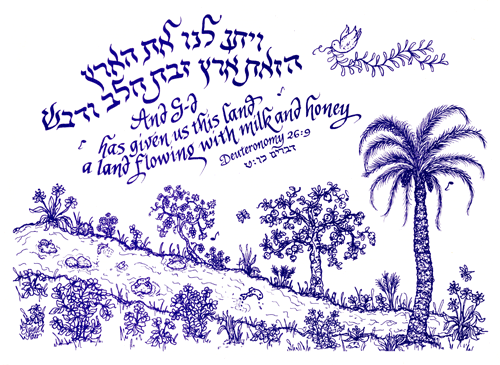 ויתן לנו את הארץ
הזאת ארץ זבת חלב ודבש
And G-d
has given us this land
a land flowing with milk and honey
Deuteronomy 26:9
דברים כו:ט